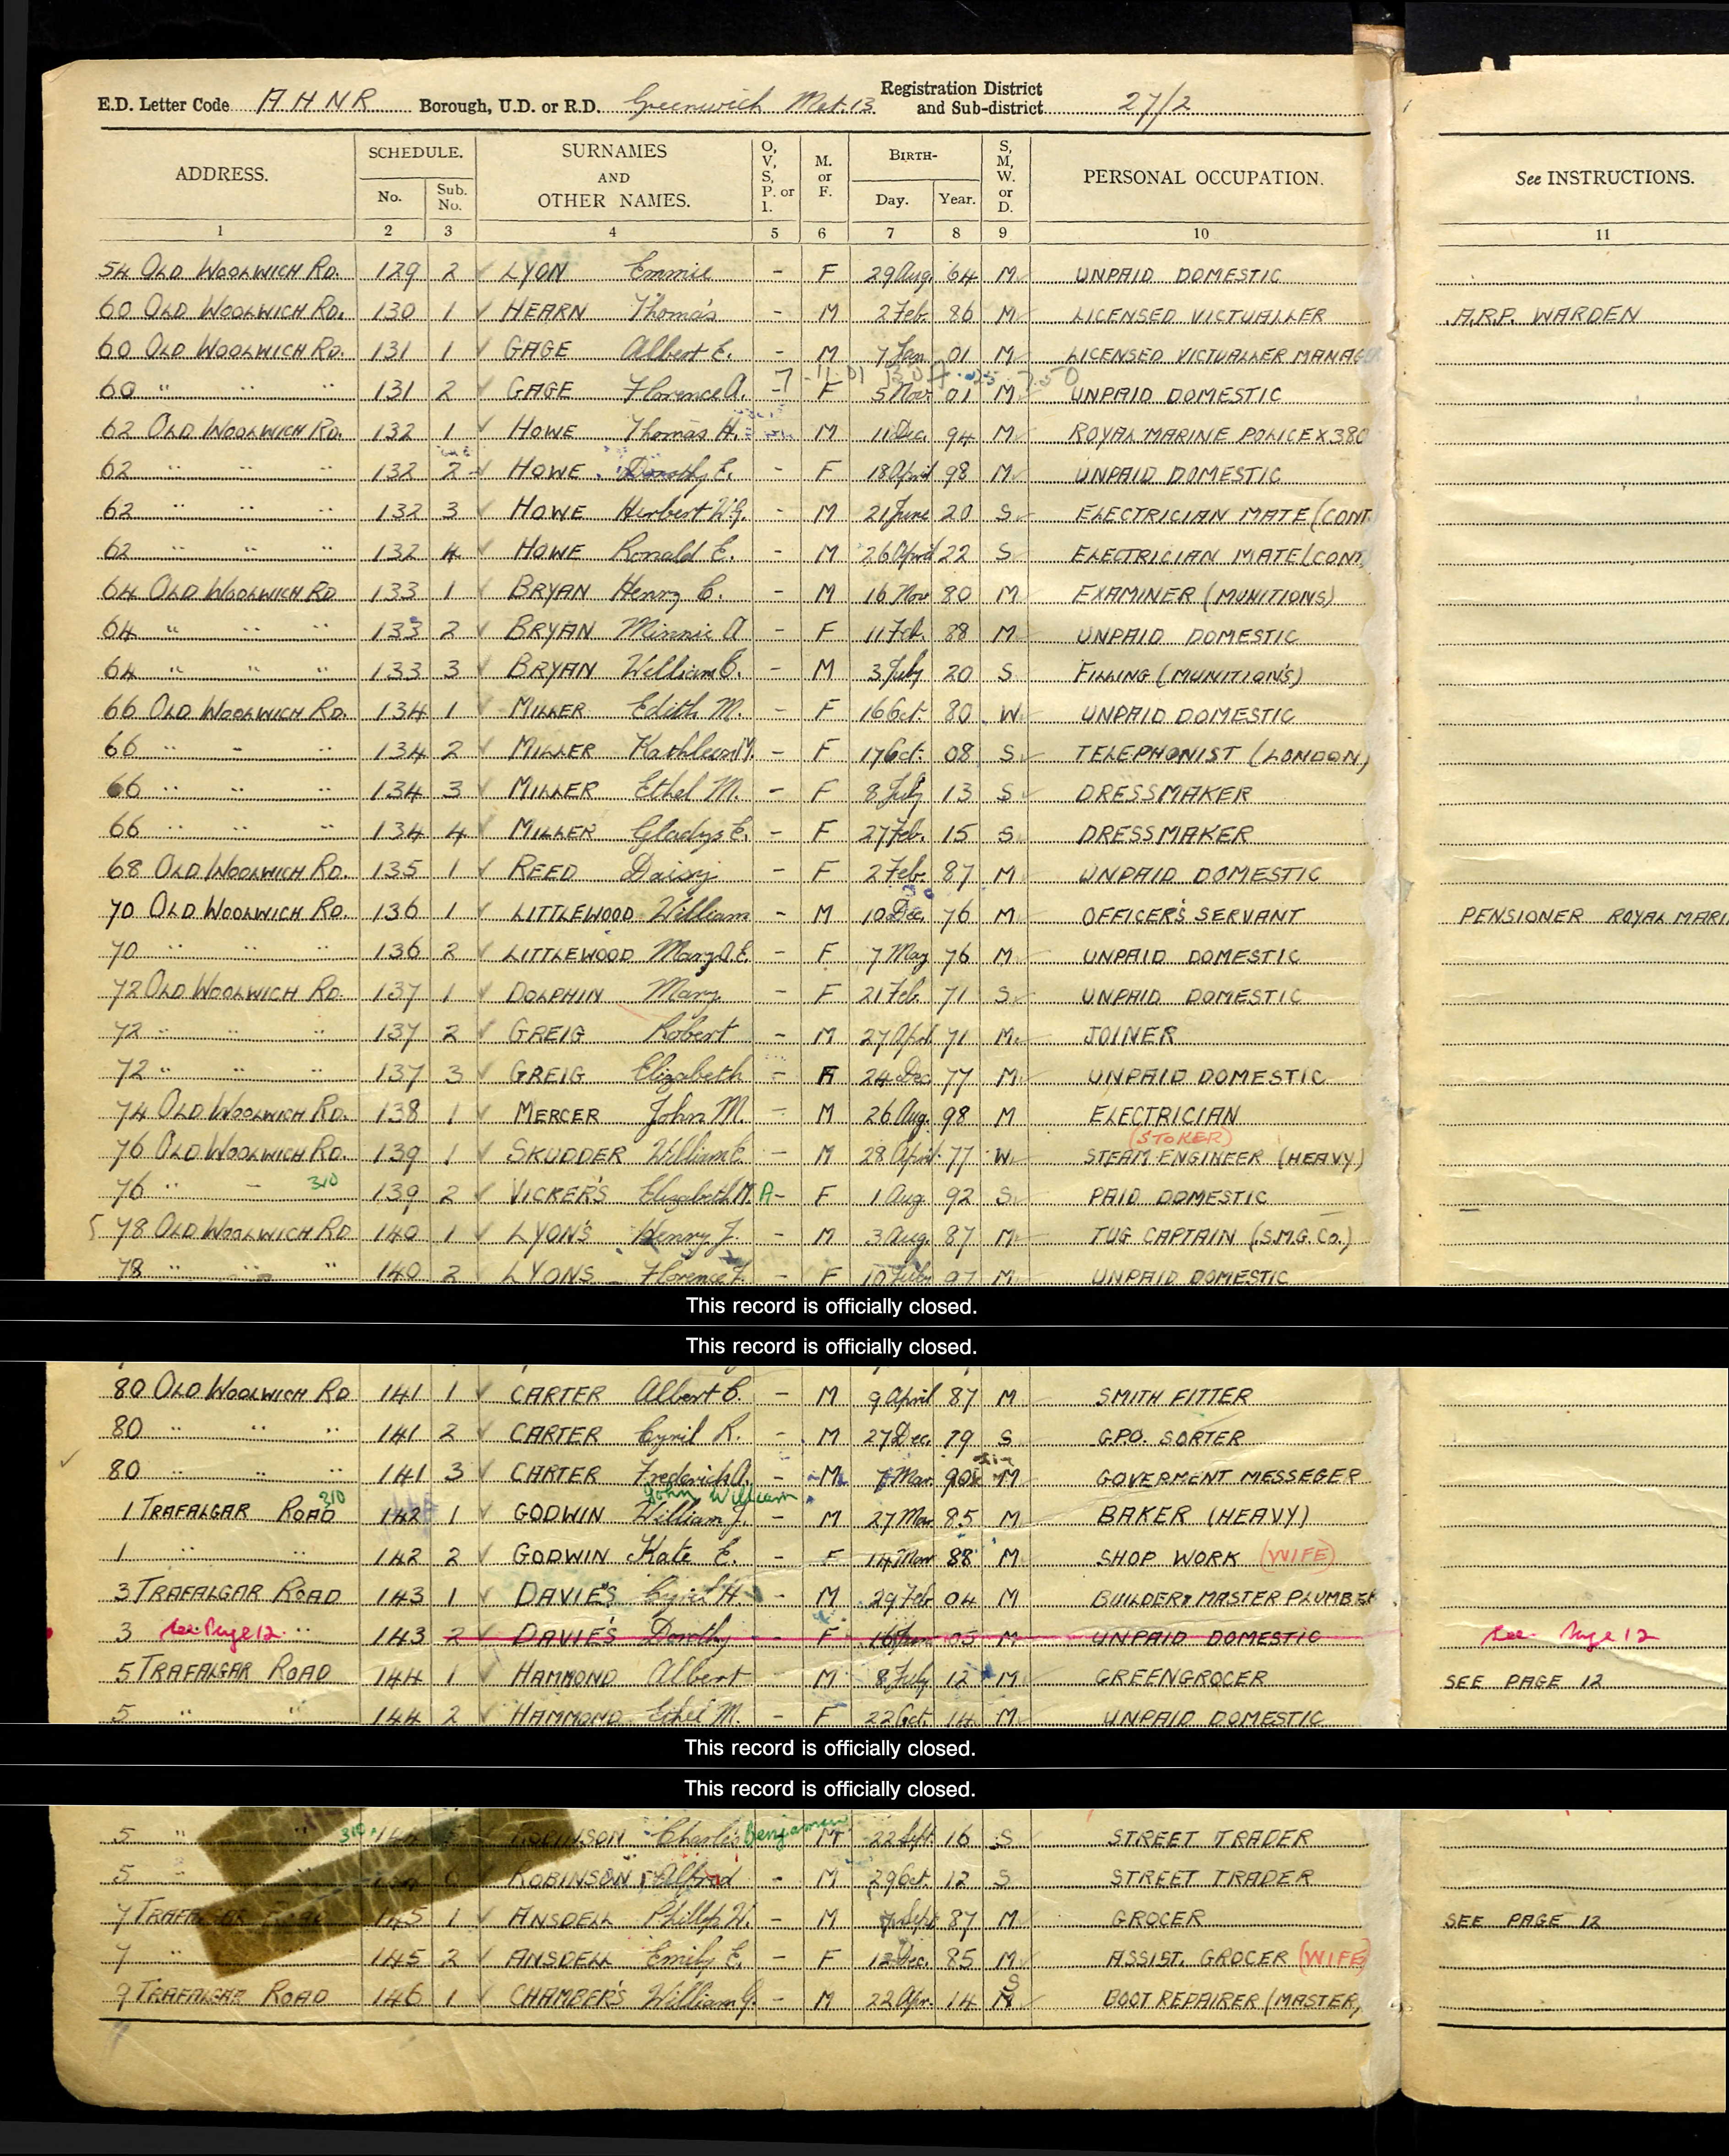 E.D. Letter Code A H N R Borough, U.D. or R.D. Greenwich Met. 13 Registration District and Sub-district 27/2
ADDRESS. SCHEDULE. No. Sub. No. SURNAMES AND OTHER NAMES. O, V, S, P. or I. M. or F. BIRTH- Day. Year. S, M, W. or D. PERSONAL OCCUPATION. See INSTRUCTIONS.
1 2 3 4 5 6 7 8 9 10 11
54 OLD WOOLWICH RD. 129 2 ✓ LYON Emmie - F 29 Aug. 64 M UNPAID DOMESTIC
60 OLD WOOLWICH RD. 130 1 ✓ HEARN Thomas - M 2 Feb. 86 M LICENSED VICTUALLER A.R.P. WARDEN
60 OLD WOOLWICH RD. 131 1 ✓ GAGE Albert E. - M 7 Jan. 01 M LICENSED VICTUALLER MANAG
60 " " " 131 2 ✓ GAGE Florence A. - F 5 Nov. 01 M UNPAID DOMESTIC
62 OLD WOOLWICH RD. 132 1 ✓ HOWE Thomas H. - M 11 Dec. 94 M ROYAL MARINE POLICE X 380
62 " " " 132 2 HOWE Dorothy E. - F 18 April 98 M UNPAID DOMESTIC
62 " " " 132 3 ✓ HOWE Herbert W.G. - M 21 June 20 S ELECTRICIAN MATE (CONT.
62 " " " 132 4 ✓ HOWE Ronald E. - M 26 April 22 S ELECTRICIAN MATE (CONT.
64 OLD WOOLWICH RD 133 1 ✓ BRYAN Henry C. - M 16 Nov 80 M EXAMINER (MUNITIONS)
64 " " " 133 2 ✓ BRYAN Minnie A - F 11 Feb. 88 M UNPAID DOMESTIC
64 " " " 133 3 ✓ BRYAN William C. - M 3 July 20 S FILLING (MUNITION'S)
66 OLD WOOLWICH RD. 134 1 ✓ MILLER Edith M. - F 16 Oct. 80 W UNPAID DOMESTIC
66 " " " 134 2 ✓ MILLER Kathleen M. - F 17 Oct. 08 S TELEPHONIST (LONDON)
66 " " " 134 3 ✓ MILLER Ethel M. - F 8 July 13 S DRESSMAKER
66 " " " 134 4 ✓ MILLER Gladys E. - F 27 Feb. 15 S DRESSMAKER
68 OLD WOOLWICH RD. 135 1 ✓ REED Daisy - F 2 Feb. 87 M UNPAID DOMESTIC
70 OLD WOOLWICH RD. 136 1 ✓ LITTLEWOOD William - M 10 Dec. 76 M OFFICER'S SERVANT PENSIONER ROYAL MARI
70 " " " 136 2 ✓ LITTLEWOOD Mary A.E. - F 7 May 76 M UNPAID DOMESTIC
72 OLD WOOLWICH RD. 137 1 ✓ DOLPHIN Mary - F 21 Feb. 71 S UNPAID DOMESTIC
72 " " " 137 2 ✓ GREIG Robert - M 27 Apl. 71 M JOINER
72 " " " 137 3 ✓ GREIG Elizabeth - F 24 Dec 77 M UNPAID DOMESTIC
74 OLD WOOLWICH RD. 138 1 ✓ MERCER John M. - M 26 Aug. 98 M ELECTRICIAN
(STOKER)
76 OLD WOOLWICH RD. 139 1 ✓ SKUDDER William E. - M 28 April 77 W STEAM ENGINEER (HEAVY)
76 " - 310 139 2 ✓ VICKER'S Elizabeth M. A - F 1 Aug. 92 S PAID DOMESTIC
78 OLD WOOLWICH RD 140 1 ✓ LYON'S Henry J. - M 3 Aug. 87 M TUG CAPTAIN (S.M.G. Co.)
78 " " " 140 2 ✓ LYONS Florence F. - F 10 97 M UNPAID DOMESTIC
This record is officially closed.
This record is officially closed.
80 OLD WOOLWICH RD 141 1 ✓ CARTER Albert C. - M 9 April 87 M SMITH FITTER
80 " " " 141 2 ✓ CARTER Cyril R. - M 27 Dec. 19 S G.P.O. SORTER
✓ 80 " " " 141 3 ✓ CARTER Frederick A. - M 7 Mar. 90 M GOVERMENT MESSEGER
John William
1 TRAFALGAR ROAD 310 142 1 ✓ GODWIN William J. - M 27 Mar 85 M BAKER (HEAVY)
1 " " 142 2 ✓ GODWIN Kate E. - F 14 Mar 88 M SHOP WORK (WIFE)
3 TRAFALGAR ROAD 143 1 ✓ DAVIE'S Cyril H. - M 29 Feb 04 M BUILDER & MASTER PLUMBER
3 see Page 12 " 143 2 DAVIE'S Dorothy - F 16 05 M UNPAID DOMESTIC see Page 12
5 TRAFALGAR ROAD 144 1 ✓ HAMMOND Albert - M 8 July 12 M GREENGROCER SEE PAGE 12
5 " " 144 2 ✓ HAMMOND Ethel M. - F 22 Oct. 14 M UNPAID DOMESTIC
This record is officially closed.
This record is officially closed.
5 " " 310 ROBINSON Charles Benjamin M 22 Sept. 16 S STREET TRADER
5 " ROBINSON Alfred - M 29 Oct. 12 S STREET TRADER
7 TRAFALGAR ROAD 145 1 ✓ ANSDELL Phillip W. - M 7 Sept 87 M GROCER SEE PAGE 12
7 " 145 2 ✓ ANSDELL Emily E. - F 12 Dec. 85 M ASSIST. GROCER (WIFE)
9 TRAFALGAR ROAD 146 1 ✓ CHAMBER'S William G. - M 22 Apr. 14 S BOOT REPAIRER (MASTER)